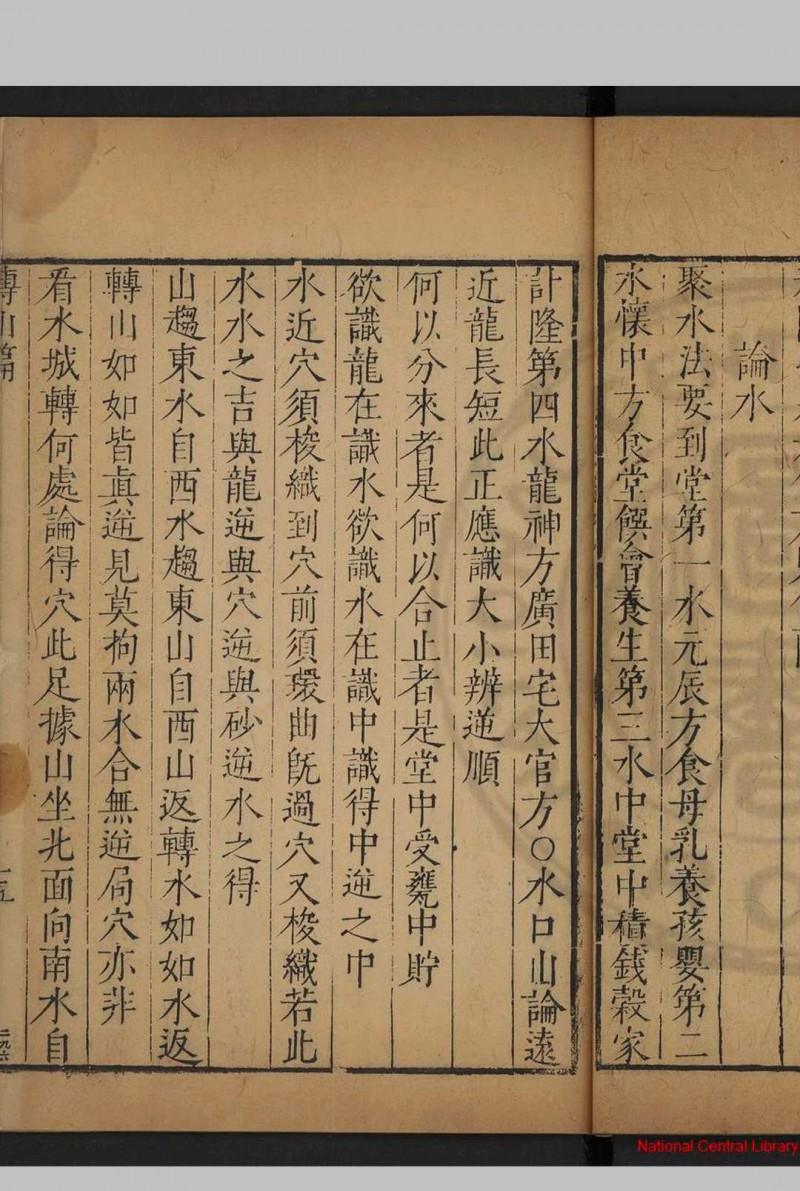 論水
聚水法要到堂第一水元辰方食母乳養孩嬰第二
水懷中方食堂饌會養生第三水中堂中積錢穀家
計隆第四水龍神方廣田宅大官方〇水口山論遠
近龍長短此正應識大小辨逆順
何以分來者是何以合止者是堂中受甕中貯
欲識龍在識水欲識水在識中識得中逆之中
水近穴須梭織到穴前須環曲旣過穴又梭織若此
水水之吉與龍逆與穴逆與砂逆水之得
山趨東水自西水趨東山自西山返轉水如如水返
轉山如如皆眞逆見莫拘兩水合無逆局穴亦非
看水城轉何處論得穴此足據山坐北面向南水自
National Central Library